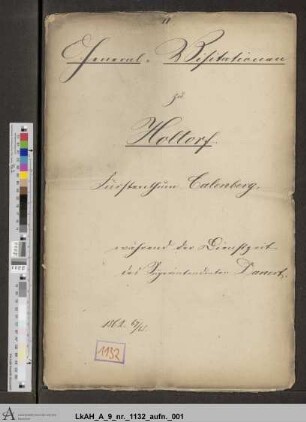 General-Visitationen
zu
Holtorf.
Fürstenthum Calenberg,
während der Dienstzeit
des Superintendenten
1862.
1132
LkAH_A_9_nr._1132_aufn._001